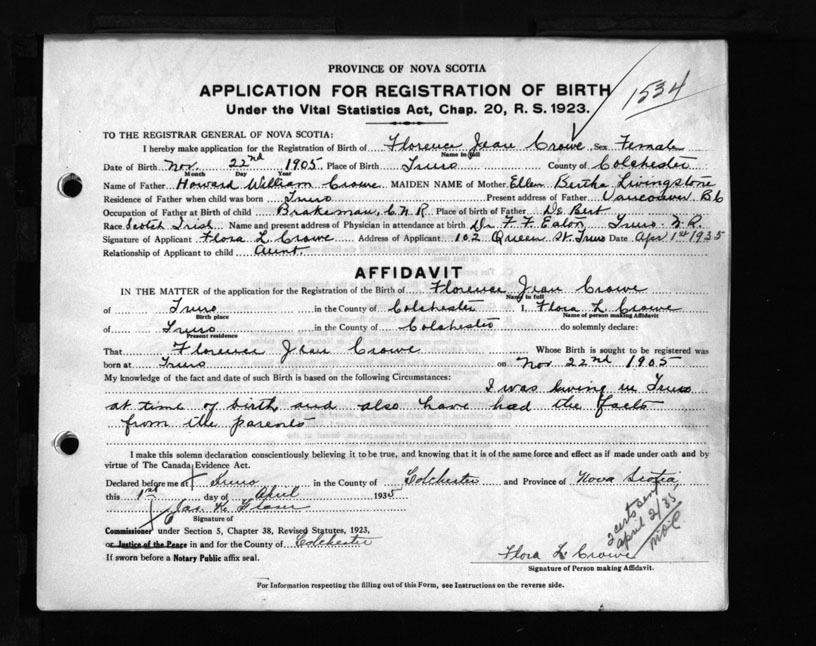 PROVINCE OF NOVA SCOTIA
1534
APPLICATION FOR REGISTRATION OF BIRTH
Under the Vital Statistics Act, Chap. 20, R. S. 1923.
TO THE REGISTRAR GENERAL OF NOVA SCOTIA:
I hereby make application for the Registration of Birth of Florence Jean Crowe Sex Female
Name in full
Date of Birth Nov. 22nd 1905 Place of Birth Truro County of Colchester
Month Day Year
Name of Father Howard William Crowe MAIDEN NAME of Mother Ellen Bertha Livingstone
Residence of Father when child was born Truro Present address of Father Vancouver BC
Occupation of Father at Birth of child Brakeman, C.N.R. Place of birth of Father De Bert
Race Scotch Irish Name and present address of Physician in attendance at birth Dr F. F. Eaton Truro N.S.
Signature of Applicant Flora L Crowe Address of Applicant 102 Queen St. Truro Date Apr 1st 1935
Relationship of Applicant to child Aunt
AFFIDAVIT
IN THE MATTER of the application for the Registration of the Birth of Florence Jean Crowe
Name in full
of Truro in the County of Colchester I, Flora L Crowe
Birth place Name of person making Affidavit
of Truro in the County of Colchester do solemnly declare:
Present residence
That Florence Jean Crowe Whose Birth is sought to be registered was
born at Truro on Nov 22nd 1905
My knowledge of the fact and date of such Birth is based on the following Circumstances:
I was living in Truro
at time of birth and also have had the facts
from the parents
I make this solemn declaration conscientiously believing it to be true, and knowing that it is of the same force and effect as if made under oath and by
virtue of The Canada Evidence Act.
Declared before me at Truro in the County of Colchester and Province of Nova Scotia
this 1st day of April 1935
Signature of
Commissioner under Section 5, Chapter 38, Revised Statutes, 1923,
or Justice of the Peace in and for the County of Colchester
If sworn before a Notary Public affix seal.
2 certs sent
April 2/35
Flora L Crowe
Signature of Person making Affidavit.
For Information respecting the filling out of this Form, see Instructions on the reverse side.